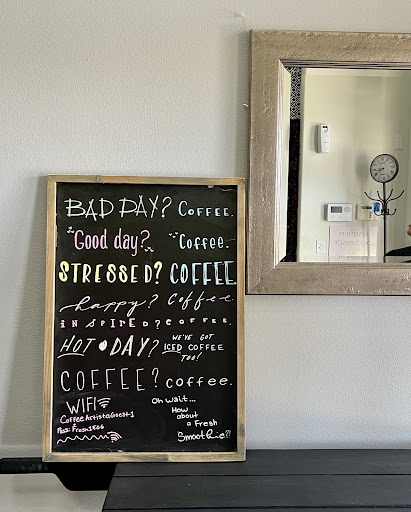 BAD DAY? COFFEE.
Good day? Coffee.
STRESSED? COFFEE
happy? Coffee
INSPIRED? COFFEE.
HOT DAY? WE'VE GOT
ICED COFFEE
TOO!
COFFEE? coffee.
WIFI
CoffeeArtistsGuest-1
Pass: Fresh1506
Oh wait...
How
about
a Fresh
Smoothie?!